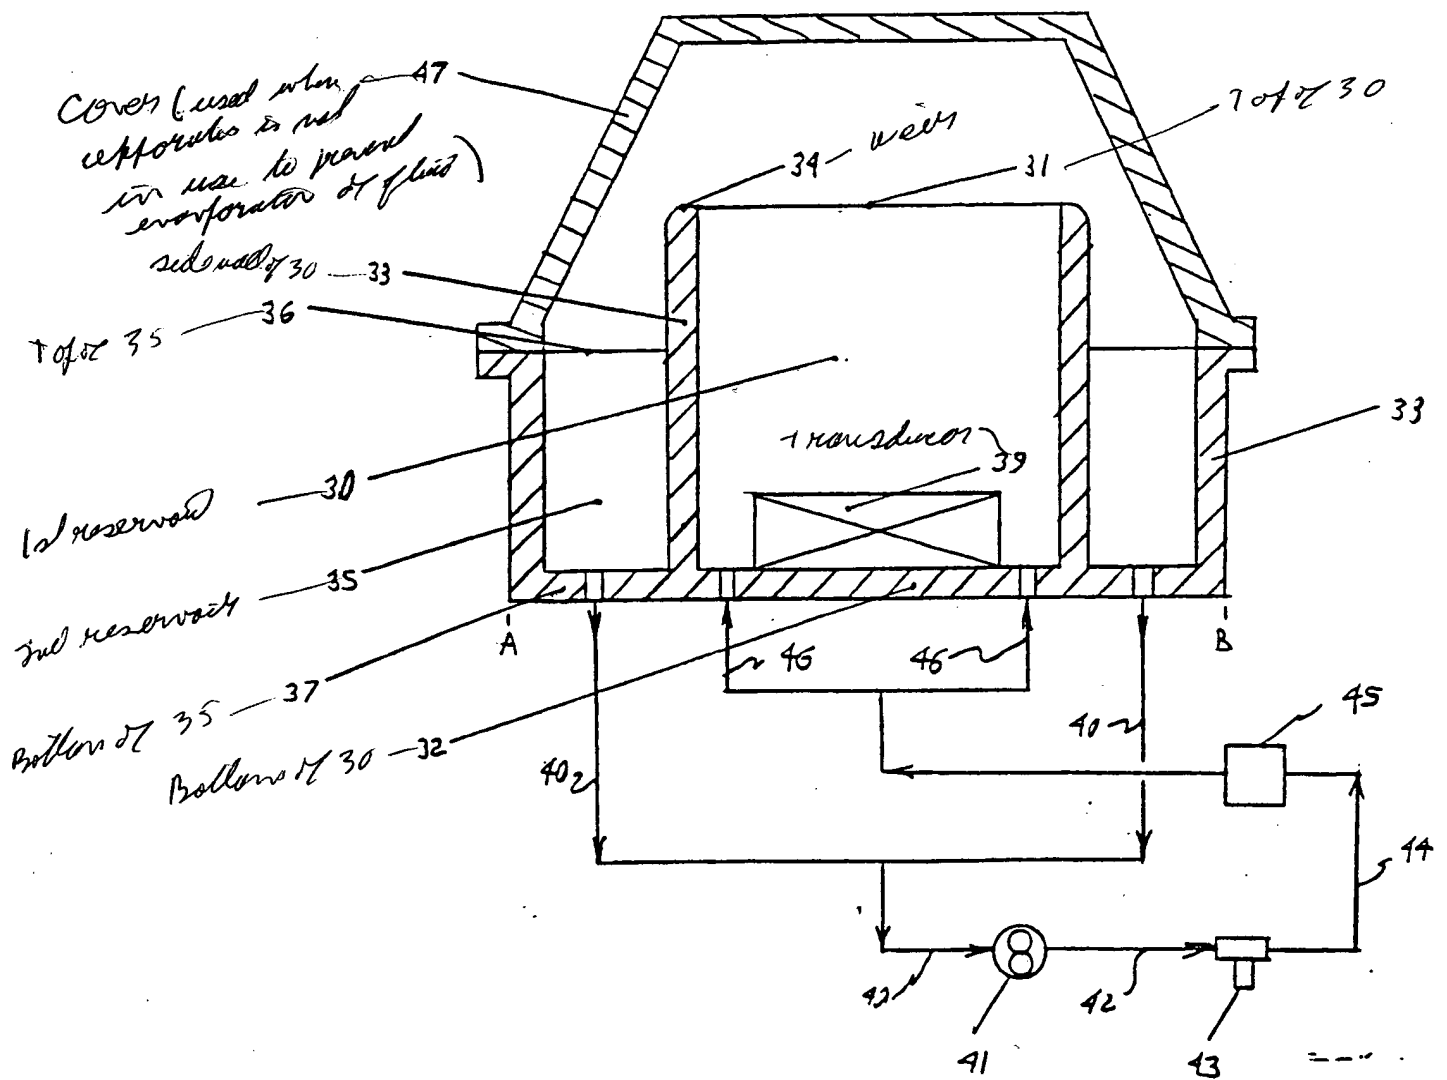 Cover (used when — 47
apparatus is not
in use to prevent
evaporation of fluid)
34 — weir
31 — Top of 30
sidewall of 30 — 33
Top of 35 — 36
33
transducer
39
1st reservoir — 30
2nd reservoir — 35
A
B
46
46
Bottom of 35 — 37
Bottom of 30 — 32
40
40
45
44
42
42
41
43